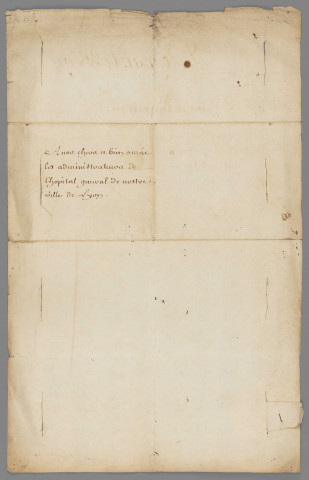 A nos chers et bien amez
les administrateurs de
l'hopital general de nostre
ville de Lyon